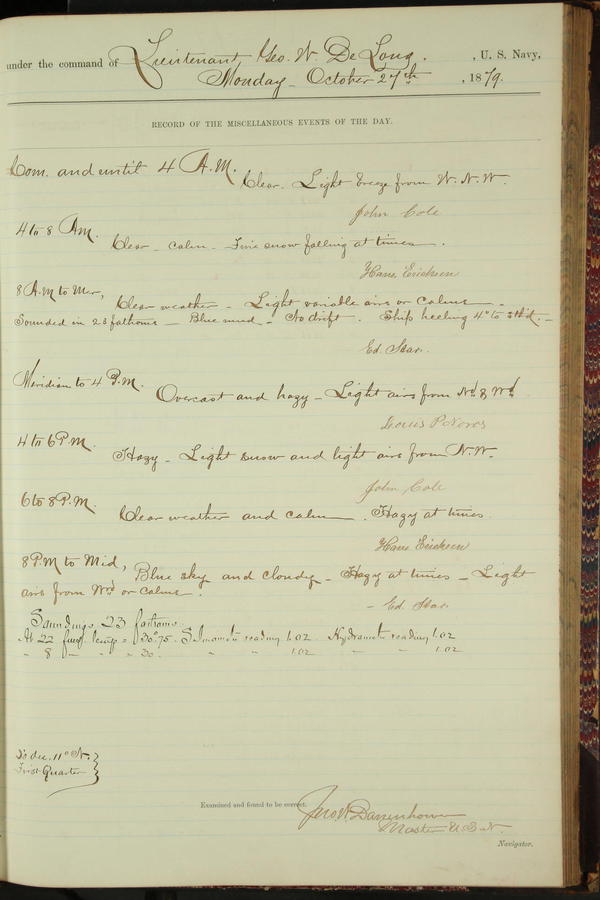 under the command of Lieutenant Geo. W. De Long. , U. S. Navy,
Monday October 27th , 1879.
RECORD OF THE MISCELLANEOUS EVENTS OF THE DAY.
Com. and until 4 A.M.
Clear. Light breeze from W.N.W.
John Cole
4 to 8 A.M.
Clear - calm - Fine snow falling at times.
Hans Ericksen
8 A.M to Mer,
Clear weather - Light variable airs or calms -
Sounded in 23 fathoms - Blue mud - No drift. Ship heeling 4° to Stbd. -
Ed. Star.
Meridian to 4 P.M.
Overcast and hazy - Light airs from Nd & Wd
Louis P Noros
4 to 6 P.M.
Hazy - Light snow and light airs from N.W.
John Cole
6 to 8 P.M.
Clear weather and calm. Hazy at times.
Hans Ericksen
8 P.M to Mid,
Blue sky and cloudy - Hazy at times - Light
airs from Wd or calms.
- Ed. Star.
Soundings 23 fathoms
At 22 temp = 30°.75 Salinometer reading 1.02 Hydrometer reading 1.02
" 8 " " 30. " " 1.02 " " 1.02
dec. 11° N.
First Quarter
Examined and found to be correct.
Jno W. Danenhower
Master U.S.N.
Navigator.